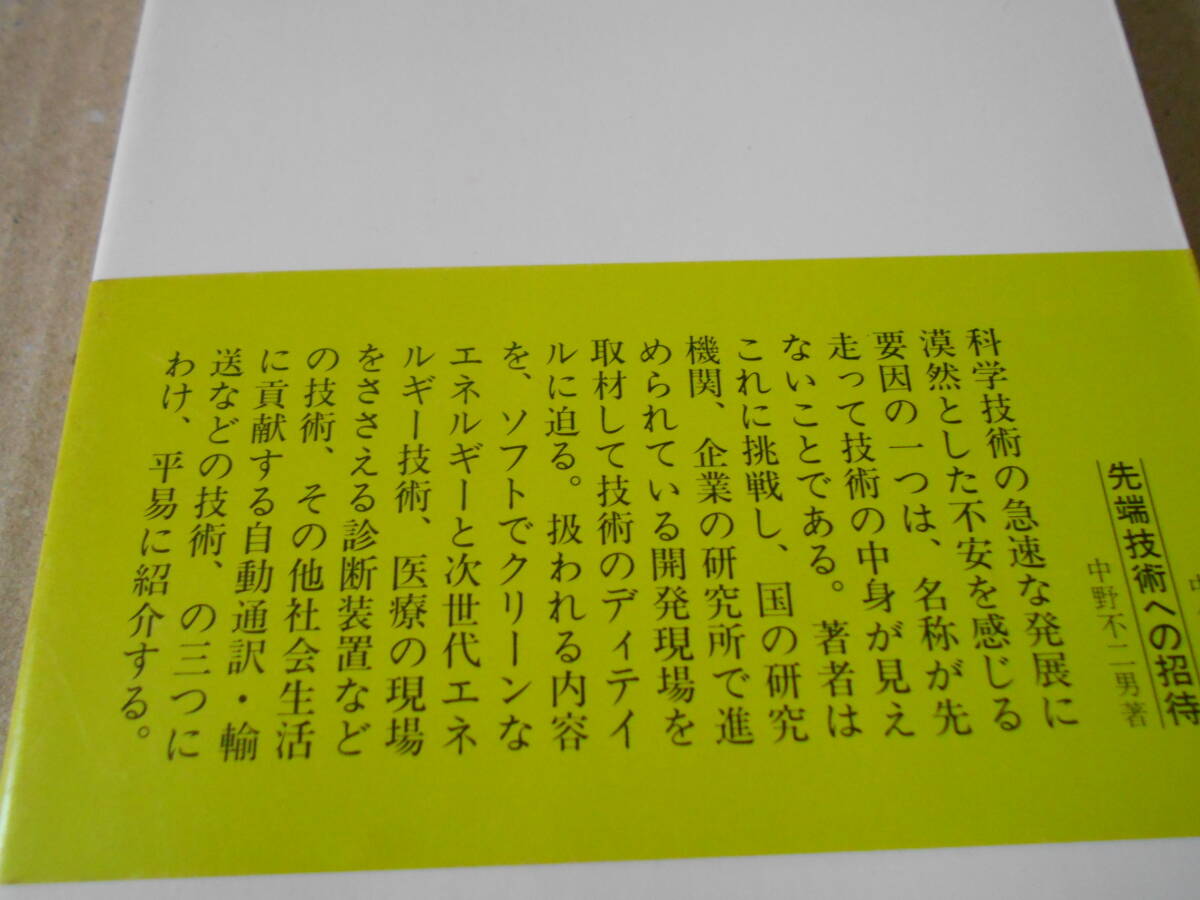 先端技術への招待
中野不二男著
科学技術の急速な発展に
漠然とした不安を感じる
要因の一つは、名称が先
走って技術の中身が見え
ないことである。著者は
これに挑戦し、国の研究
機関、企業の研究所で進
められている開発現場を
取材して技術のディテイ
ルに迫る。扱われる内容
を、ソフトでクリーンな
エネルギーと次世代エネ
ルギー技術、医療の現場
をささえる診断装置など
の技術、その他社会生活
に貢献する自動通訳・輸
送などの技術、の三つに
わけ、平易に紹介する。